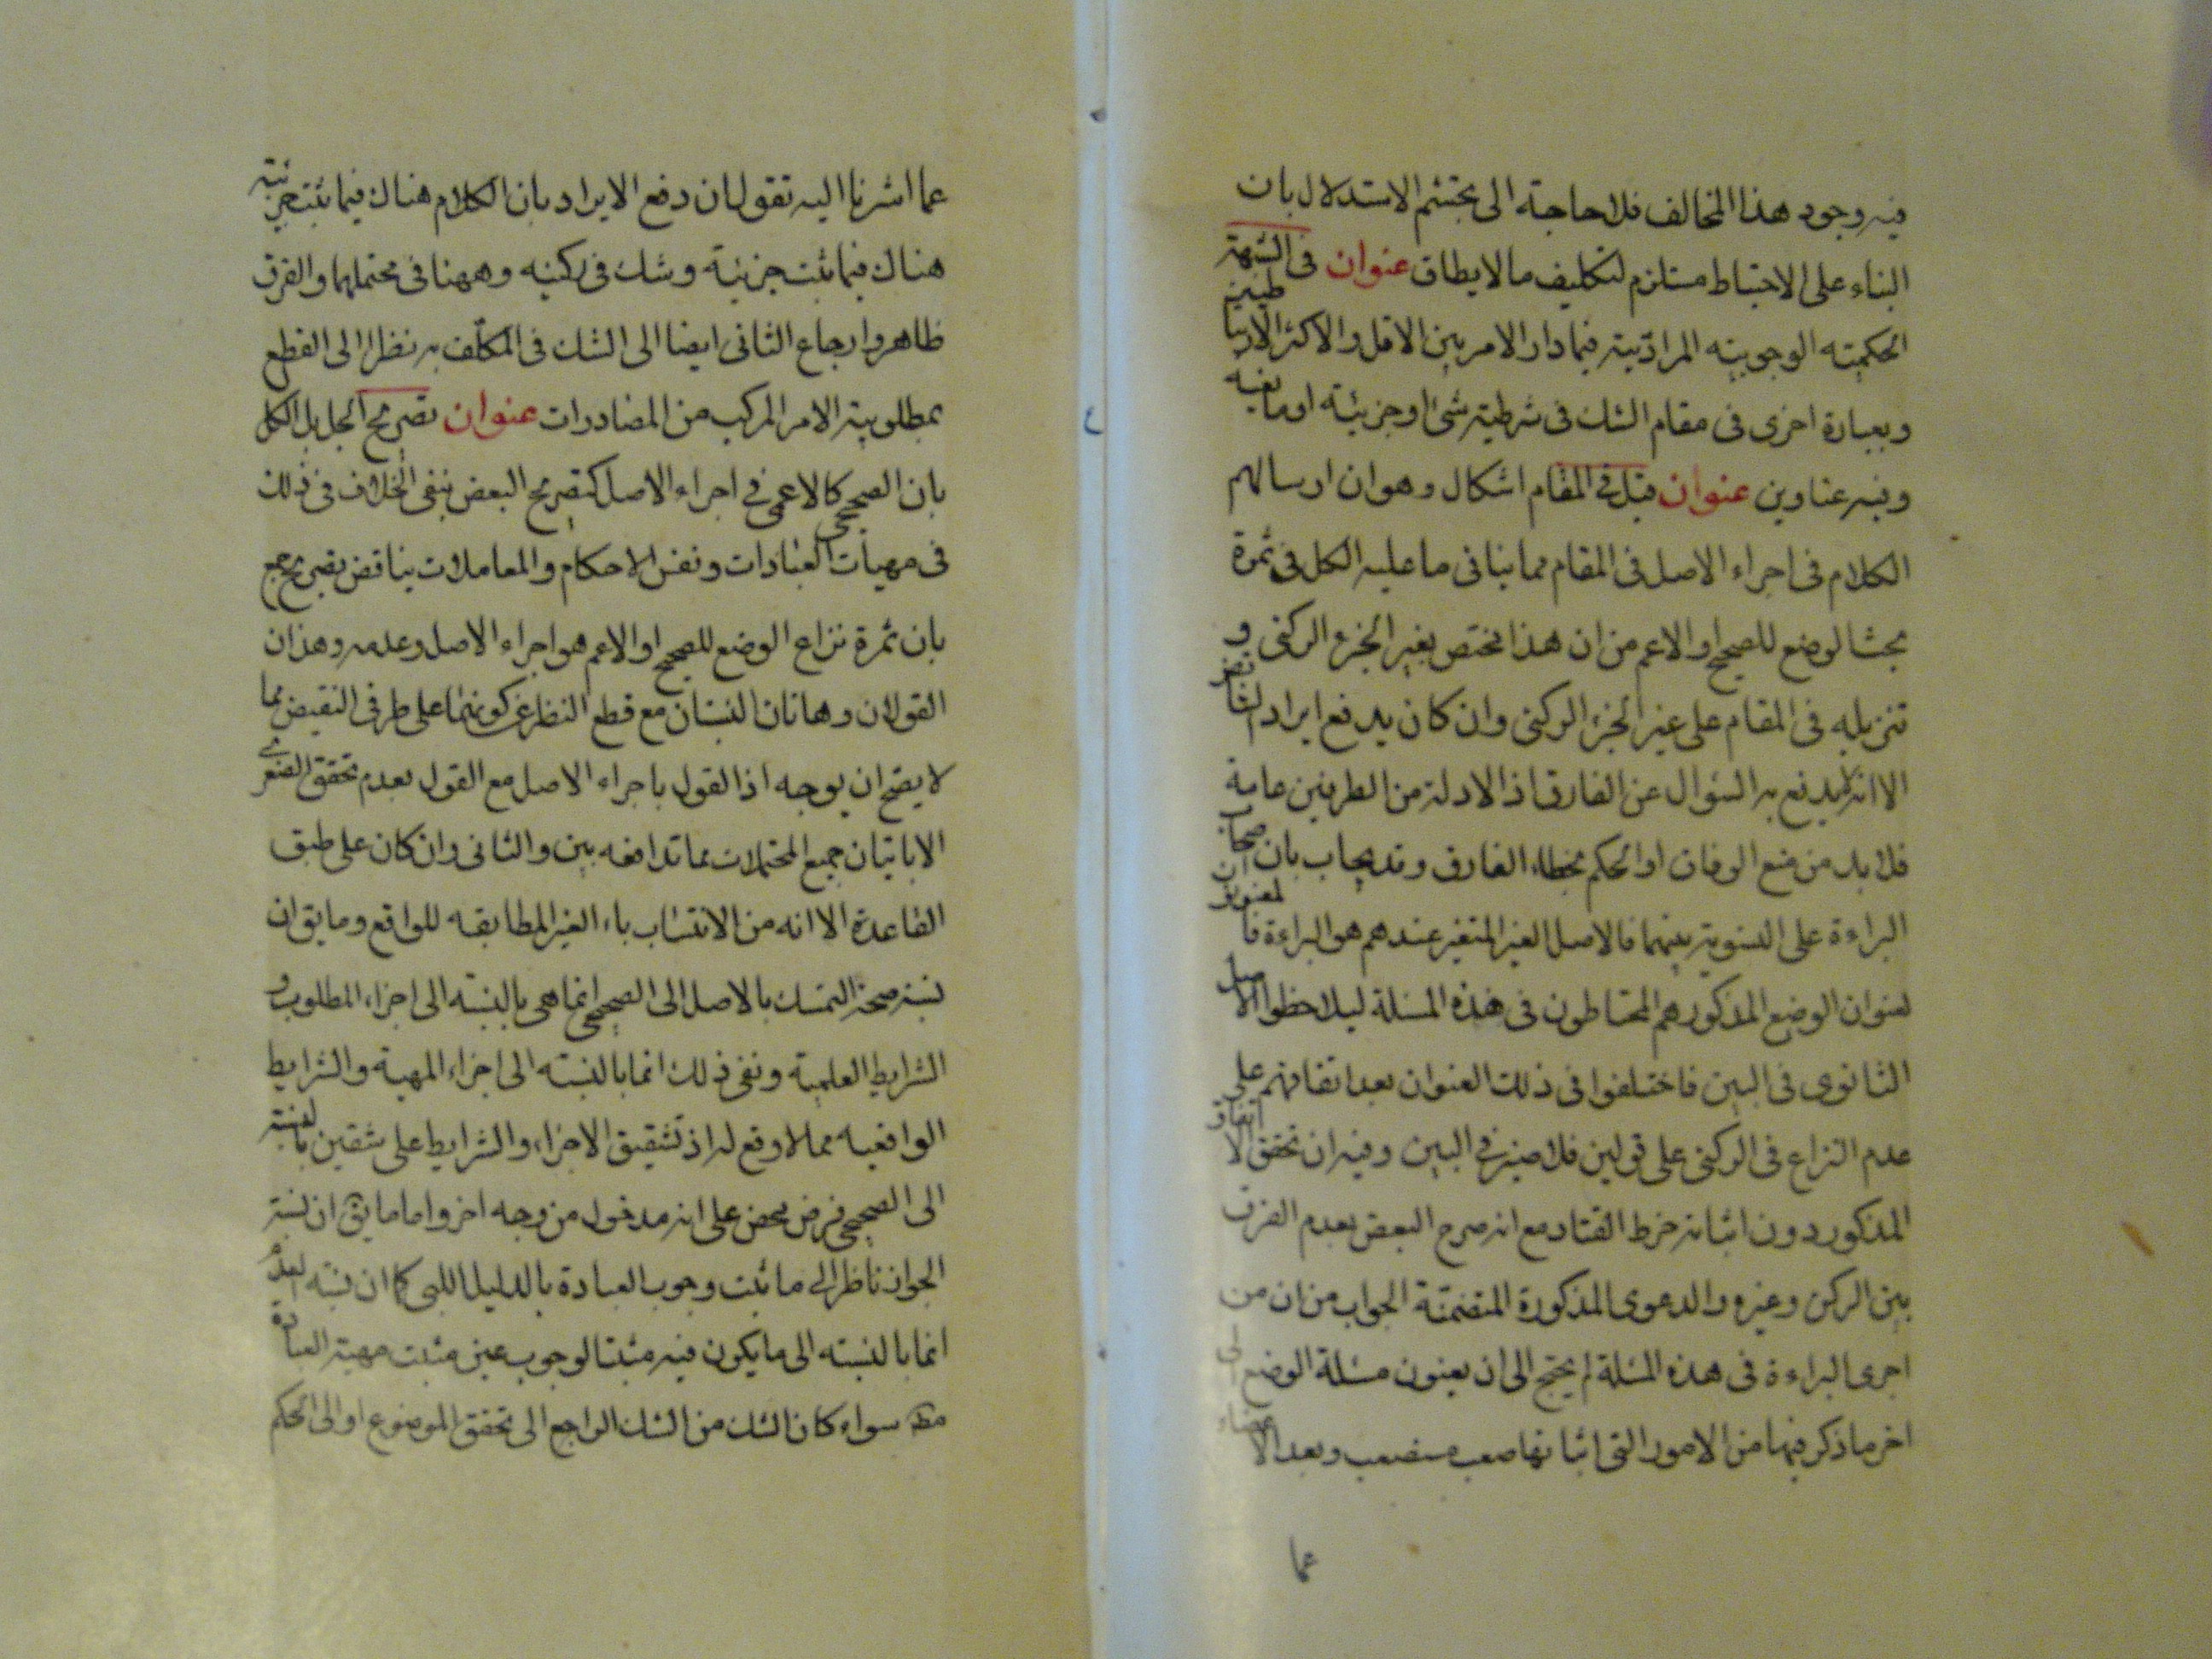 فيه وجود هذا المخالف فلا حاجة الى تجشم الاستدلال بان
البناء على الاحتياط مستلزم لتكليف ما لا يطاق عنوان فى الشبهة
الحكمية الوجوبية المرادية فيما دار الامر بين الاقل والاكثر الارتباطيين
وبعبارة اخرى فى مقام الشك فى شرطية شئ او جزئية او مانعية
وفيه عناوين عنوان قيل فى المقام اشكال وهو ان ارسالهم
الكلام فى اجراء الاصل فى المقام مما ينافى ما عليه الكل فى ثمرة
بحث الوضع للصحيح او الاعم من ان هذا مختص بغير الجزء الركنى و
تنزيله فى المقام على غير الجزء الركنى وان كان يدفع ايراد التناقض
الا انه لا يدفع به السؤال عن الفارق اذ الادلة من الطرفين عامة
فلا بد من منع الوفاق او الحكم بخطاء الفارق وقد يجاب بان اصحاب
البراءة على التسوية بينهما فالاصل الغير المتغير عندهم هو البراءة فالمعنونون
لعنوان الوضع المذكور هم المحتاطون فى هذه المسئلة ليلاحظوا الاصل
الثانوى فى البين فاختلفوا فى ذلك العنوان بعد اتفاقهم على
عدم النزاع فى الركنى على قولين فلا ضير فى البين وفيه ان تحقق الاتفاق
المذكور دون اثباته خرط القتاد مع انه صرح البعض بعدم الفرق
بين الركن وغيره والدعوى المذكورة المتضمنة الجواب من ان من
اجرى البراءة فى هذه المسئلة لم يحتج الى ان يعنون مسئلة الوضع الى
اخر ما ذكر فيها من الامور التى اثباتها صعب مستصعب وبعد الاغضاء
عما
عما اشرنا اليه نقول ان دفع الايراد بان الكلام هناك فيما ثبت جزئيته
هناك فيما ثبت جزئية وشك فى ركنيه وههنا فى محتملهما والفرق
ظاهر وارجاع الثانى ايضا الى الشك فى المكلف به نظرا الى القطع
بمطلوبية الامر المركب من المصادرات عنوان تصريح الجل بل الكل
بان الصحيحى كالاعمى فى اجراء الاصل كتصريح البعض بنفى الخلاف فى ذلك
فى مهيات العبادات ونفس الاحكام والمعاملات يناقض تصريح جمع
بان ثمرة نزاع الوضع للصحيح او الاعم هو اجراء الاصل وعدمه وهذان
القولان وهاتان النسبتان مع قطع النظر عن كونهما على طرفى النقيض مما
لا يصح ان يوجه اذ القول باجراء الاصل مع القول بعدم تحقق
الا باتيان جميع المحتملات مما تدافعه بين والثانى وان كان على طبق
القاعدة الا انه من الانتساب باء الغير المطابقه للواقع وما يق ان
نسبة صحة التمسك بالاصل الى الصحيحى انما هى بالنسبه الى اجزاء المطلوب و
الشرايط العلمية ونفى ذلك انما بالنسبه الى اجزاء المهية والشرايط
الواقعيه مما لا وقع له اذ تشقيق الاجزاء والشرايط على شقين بالنسبة
الى الصحيحى فرض محض على انه مدخول من وجه اخر واما ما يق ان نسبة
الجواز ناظر الى ما ثبت وجوب العبادة بالدليل اللبى كما ان نسبه العدم
انما بالنسبه الى ما يكون فيه مثبت الوجوب عين مثبت مهية العبادة
مط سواء كان الشك من الشك الراجع الى تحقق الموضوع او الى الحكم